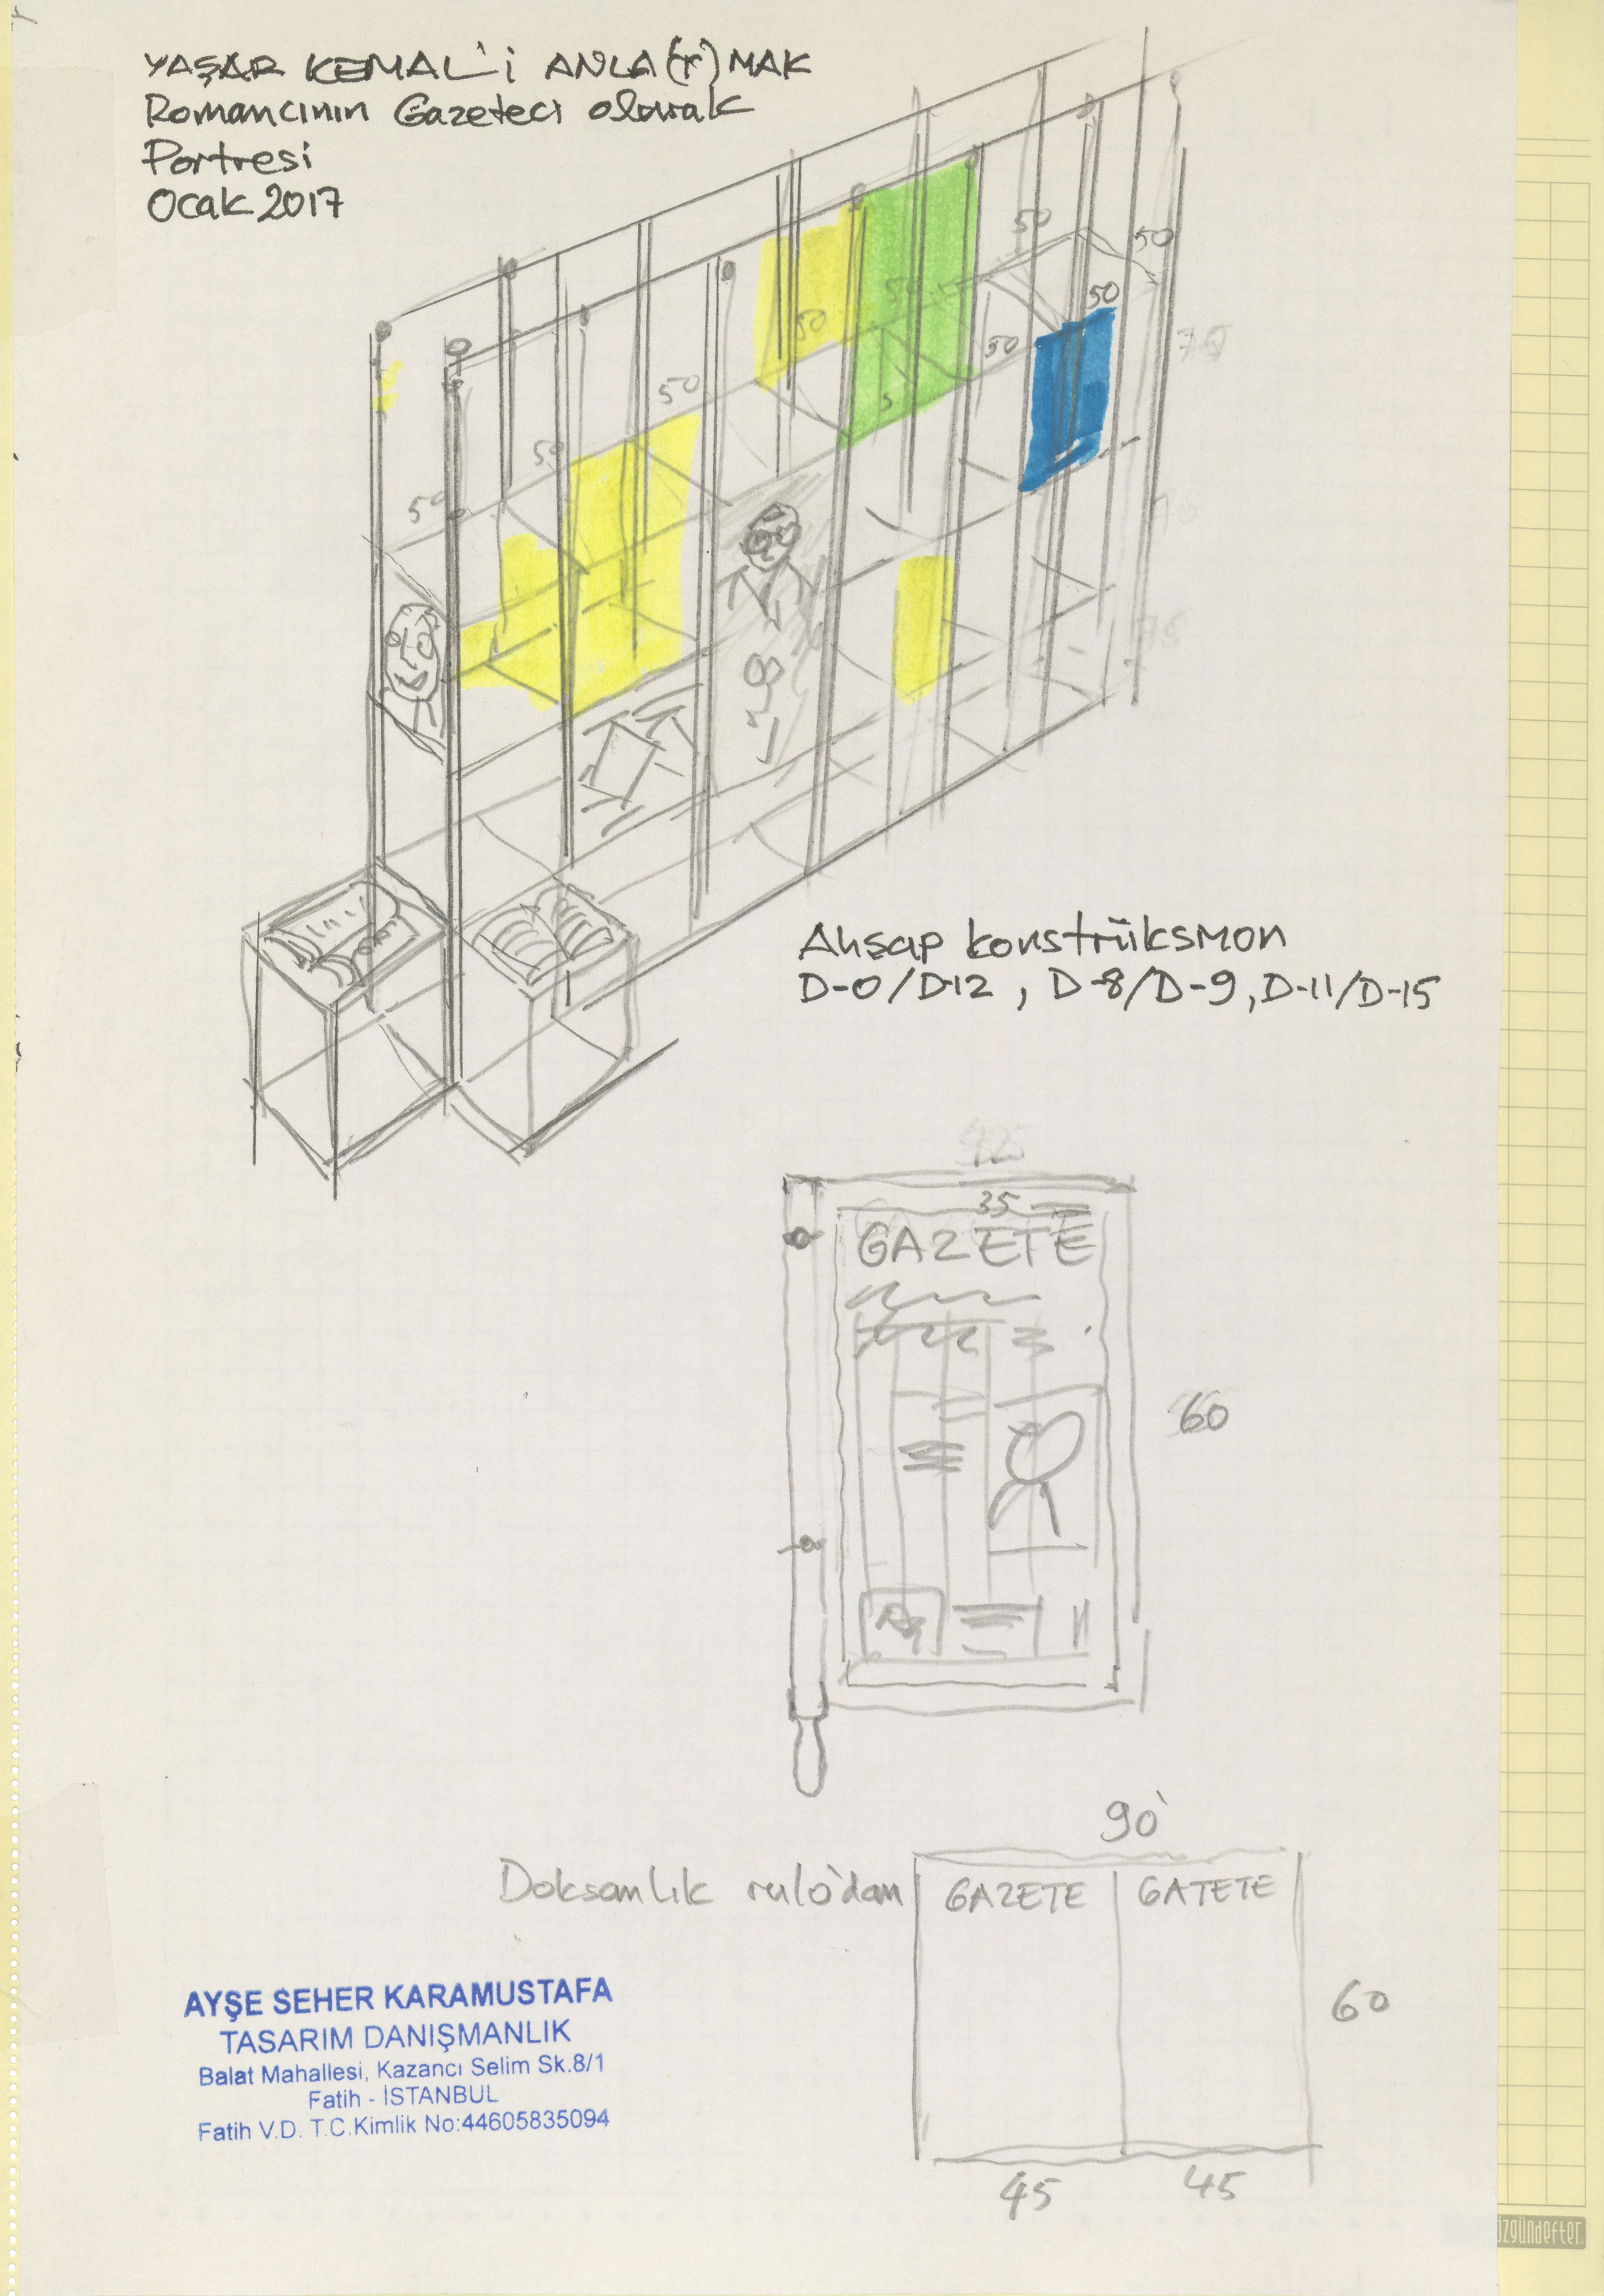 YAŞAR KEMAL'İ ANLA(T)MAK
Romancının Gazeteci olarak
Portresi
Ocak 2017
50
50
50
50
50
50
50
50
50
75
75
Ahşap konstrüksiyon
D-0/D-12, D-8/D-9, D-11/D-15
425
35
GAZETE
60
90
Doksanlık rulo'dan
GAZETE
GATETE
60
45
45
AYŞE SEHER KARAMUSTAFA
TASARIM DANIŞMANLIK
Balat Mahallesi, Kazancı Selim Sk.8/1
Fatih - İSTANBUL
Fatih V.D. T.C.Kimlik No:44605835094
özgündefter